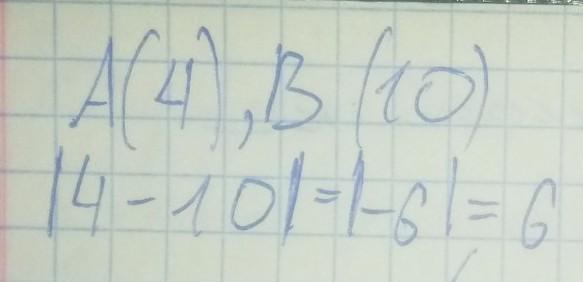 A(4), B(10)
|4-10|=|-6|=6